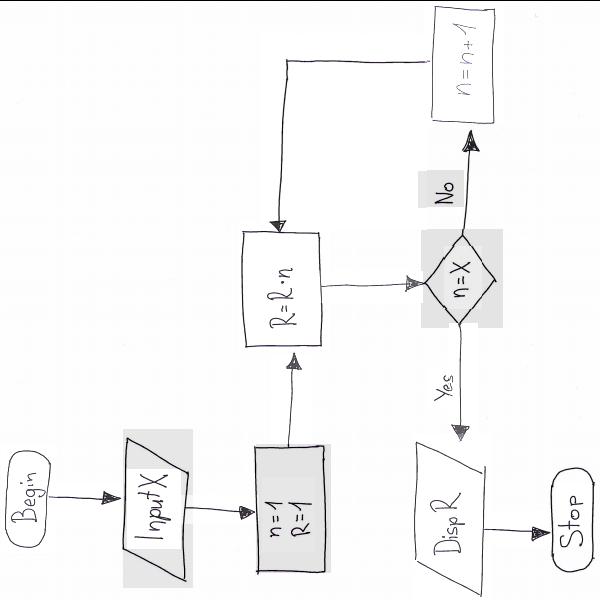 Begin
Input X
n=1
R=1
R=R·n
n=X
No
n=n+1
Yes
Disp R
Stop